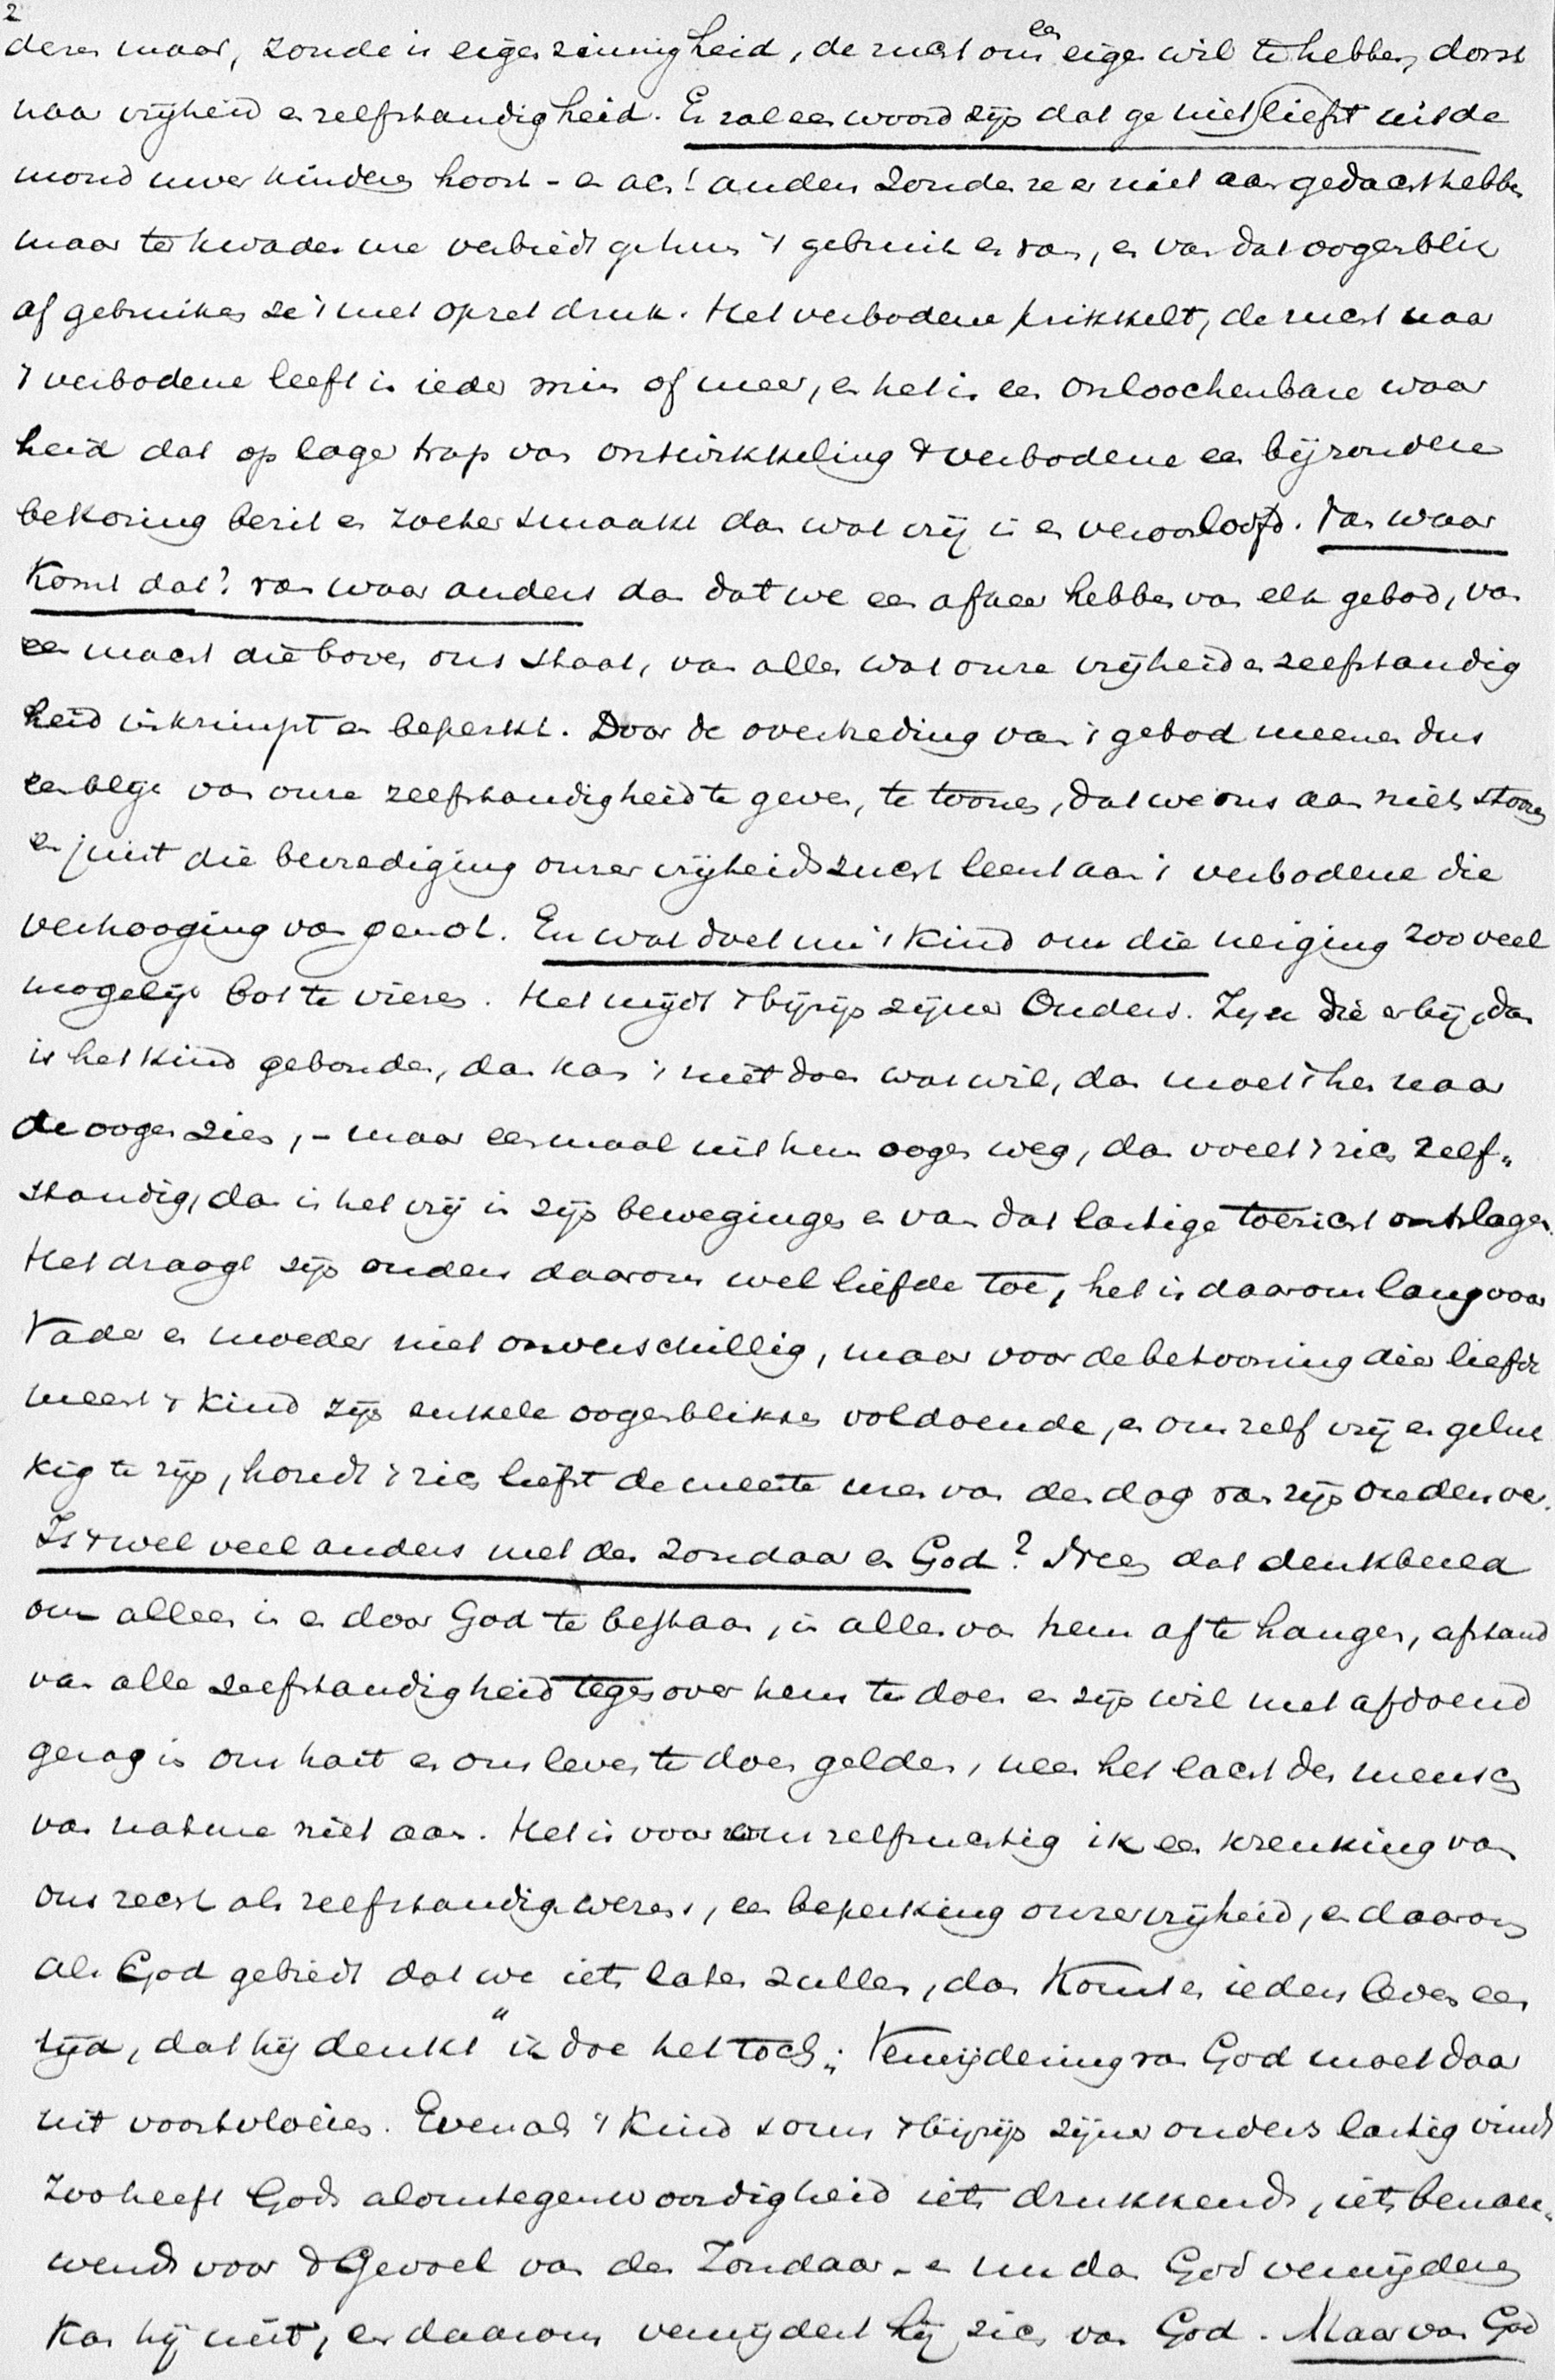 2
deren maar, zonde is eigenzinnigheid, de zucht om een eigen wil te hebben, dorst
naar vrijheid en zelfstandigheid. Er zal een woord zijn dat ge niet liefst uit de
mond uwer kinderen hoort - en ach! anders zouden ze er niet aan gedacht hebben
maar ter kwader ure verbiedt ge hun 't gebruik er van, en van dat oogenblik
af gebruiken ze 't met opzet druk. Het verbodene prikkelt, de zucht naar
't verbodene leeft in ieder min of meer, en het is een onloochenbare waar
heid dat op lager trap van ontwikkeling 't verbodene een bijzondere
bekoring bezit en zoeter smaakt dan wat vrij is en veroorloofd. Van waar
komt dat? van waar anders dan dat we een afkeer hebben van elk gebod, van
een macht die boven ons staat, van alles wat onze vrijheid en zelfstandig
heid inkrimpt en beperkt. Door de overtreding van 't gebod meenen dus
een blijk van onze zelfstandigheid te geven, te toonen, dat we ons aan niets storen
en juist die bevrediging onzer vrijheidszucht leent aan 't verbodene die
verhooging van genot. En wat doet nu 't kind om die neiging zooveel
mogelijk bot te vieren. Het mijdt 't bijzijn zijner Ouders. Zijn die erbij, dan
is het kind gebonden, dan kan 't niet doen wat wil, dan moet 't hen naar
de oogen zien, - maar eenmaal uit hun oogen weg, dan voelt 't zich zelf„
standig, dan is het vrij in zijn bewegingen en van dat lastige toezicht ontslagen.
Het draagt zijn ouders daarom wel liefde toe, het is daarom lang voor
Vader en moeder niet onverschillig, maar voor de betooning dier liefde
meent 't kind zijn enkele oogenblikken voldoende, en om zelf vrij en geluk
kig te zijn, houdt 't zich liefst de meeste uren van den dag van zijn ouders ver.
Is 't wel veel anders met den zondaar en God? Neen dat denkbeeld
om alleen in en door God te bestaan, in alles van hem af te hangen, afstand
van alle zelfstandigheid tegenover hem te doen en zijn wil met afdoend
gezag in ons hart en ons leven te doen gelden, neen het lacht den mensch
van nature niet aan. Het is voor ons zelfzuchtig ik een krenking van
ons recht als zelfstandige wezens, een beperking onzer vrijheid, en daarom
als God gebiedt dat we iets laten zullen, dan komt er in ieders leven een
tijd, dat hij denkt "ik doe het toch„. Verwijdering van God moet daar
uit voortvloeien. Evenals 't kind soms 't bijzijn zijner ouders lastig vindt
zoo heeft Gods alomtegenwoordigheid iets drukkends, iets benau„
wends voor 't Gevoel van den Zondaar - en nu dan God verwijderen
kan hij niet, en daarom verwijdert hij zich van God. Maar van God